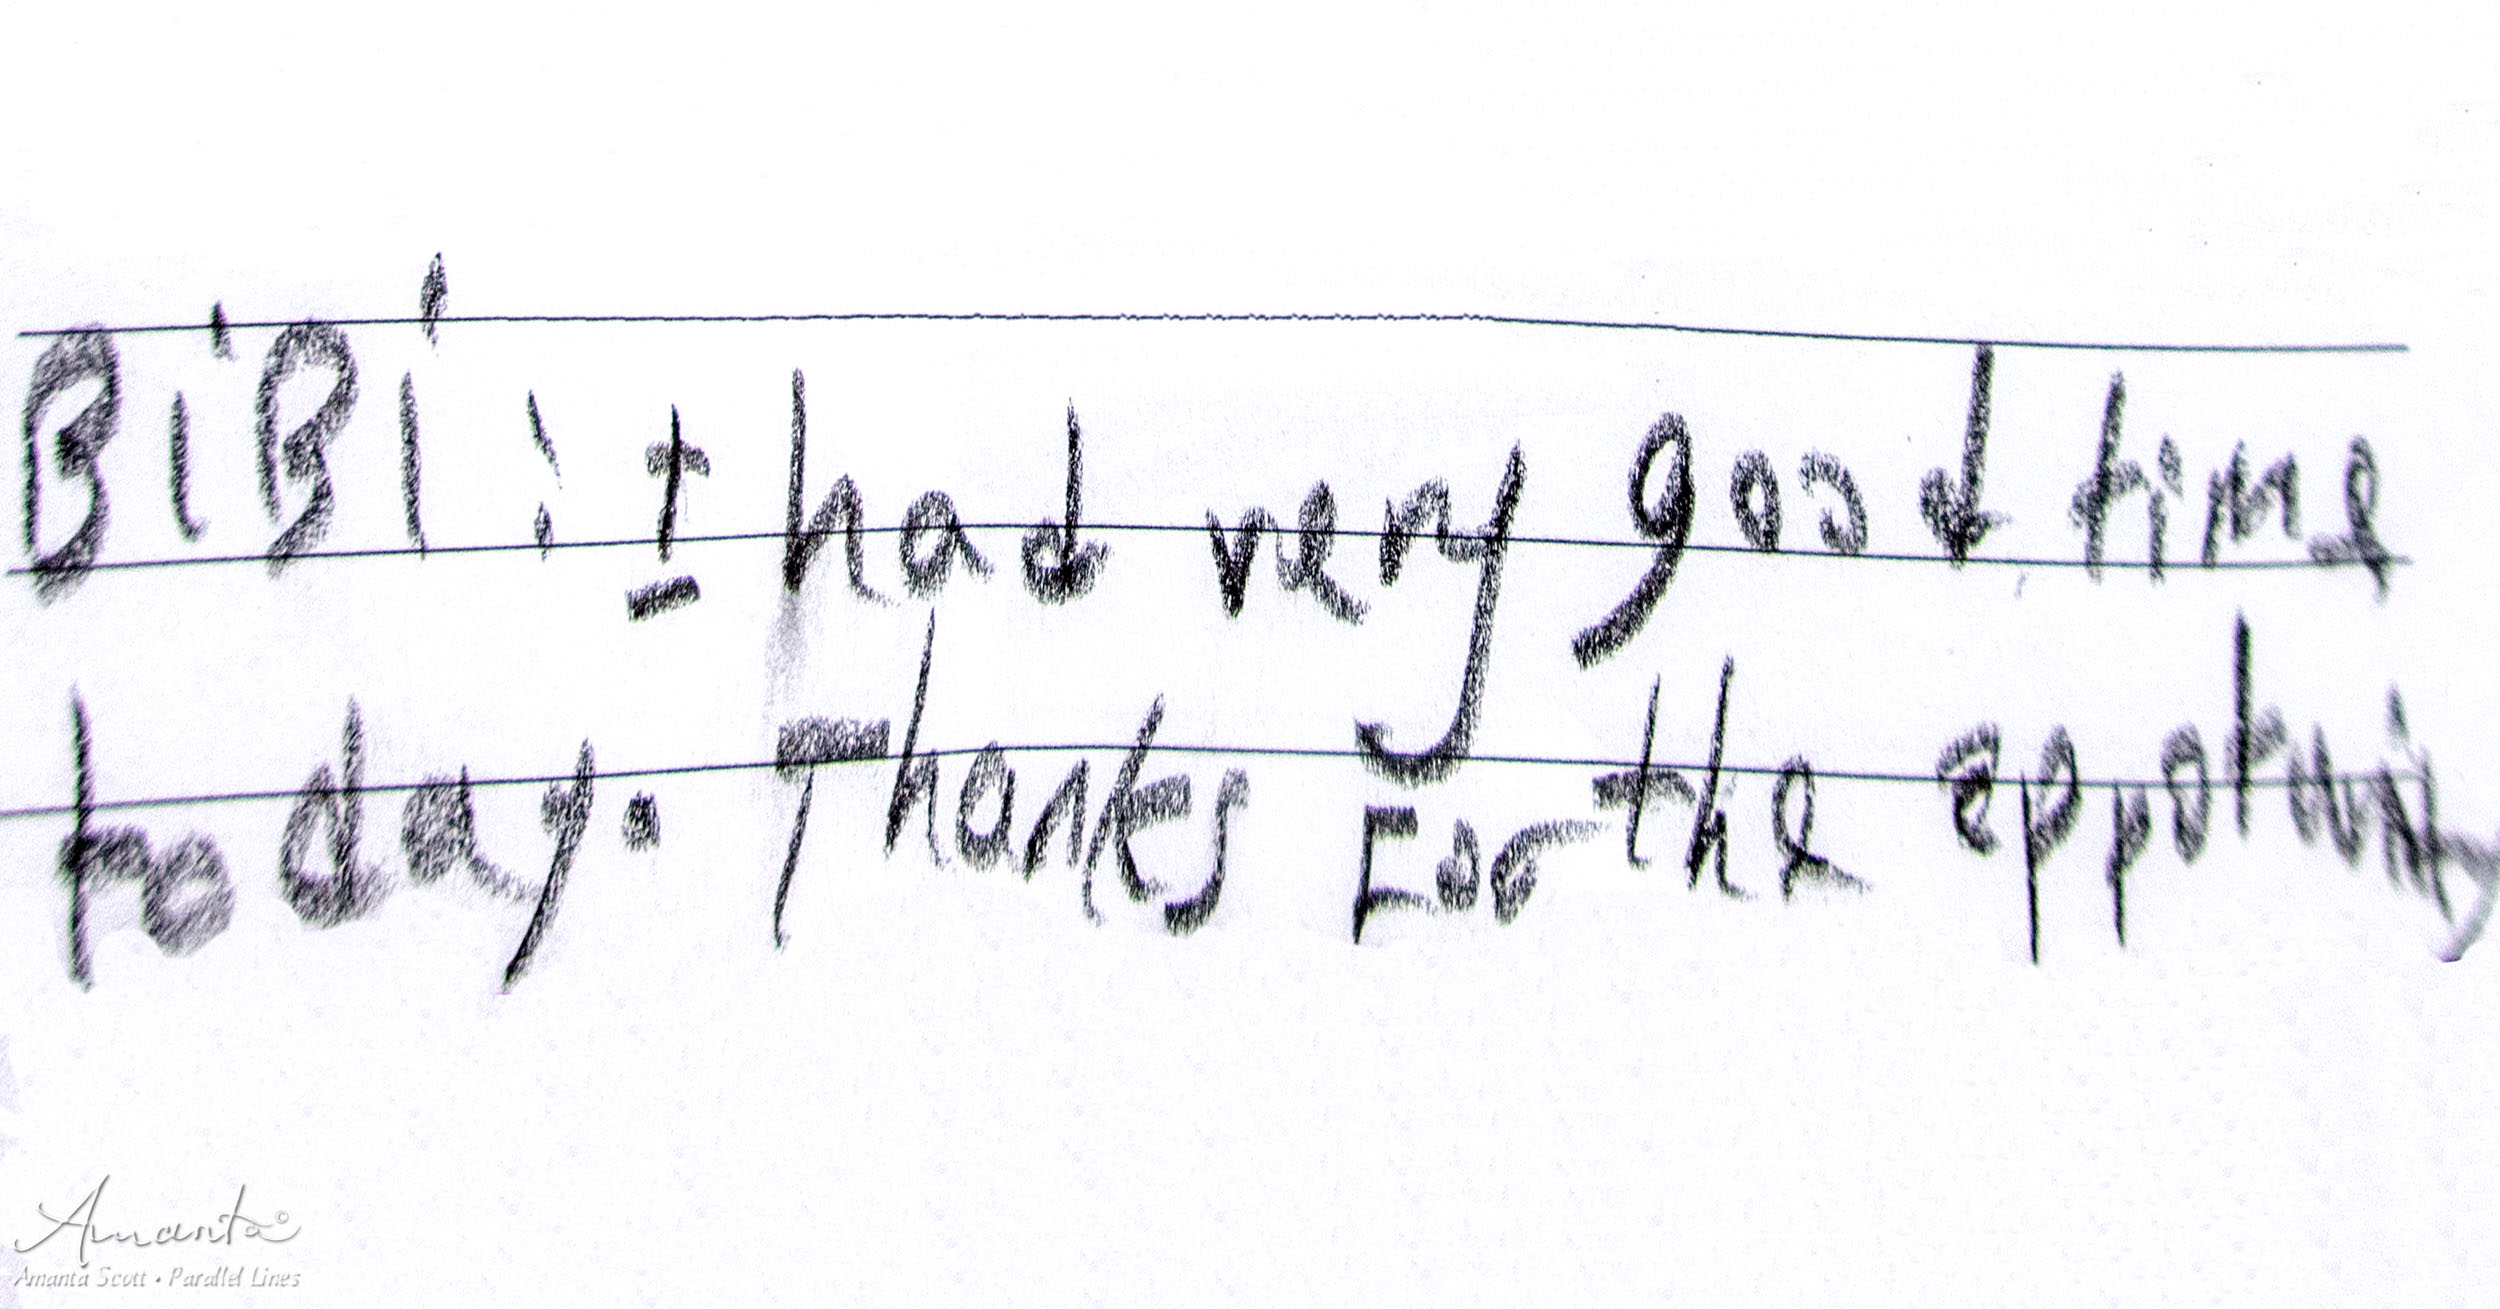 BiBi : I had very good time
today. Thanks For the appotunity
Amanta©
Amanta Scott • Parallel Lines